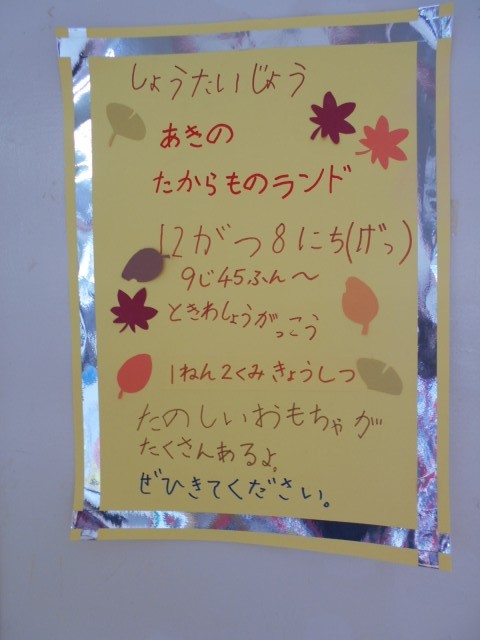 しょうたいじょう
あきの
たからものランド
12がつ8にち(げつ)
9じ45ふん〜
ときわしょうがっこう
1ねん2くみきょうしつ
たのしいおもちゃが
たくさんあるよ。
ぜひきてください。